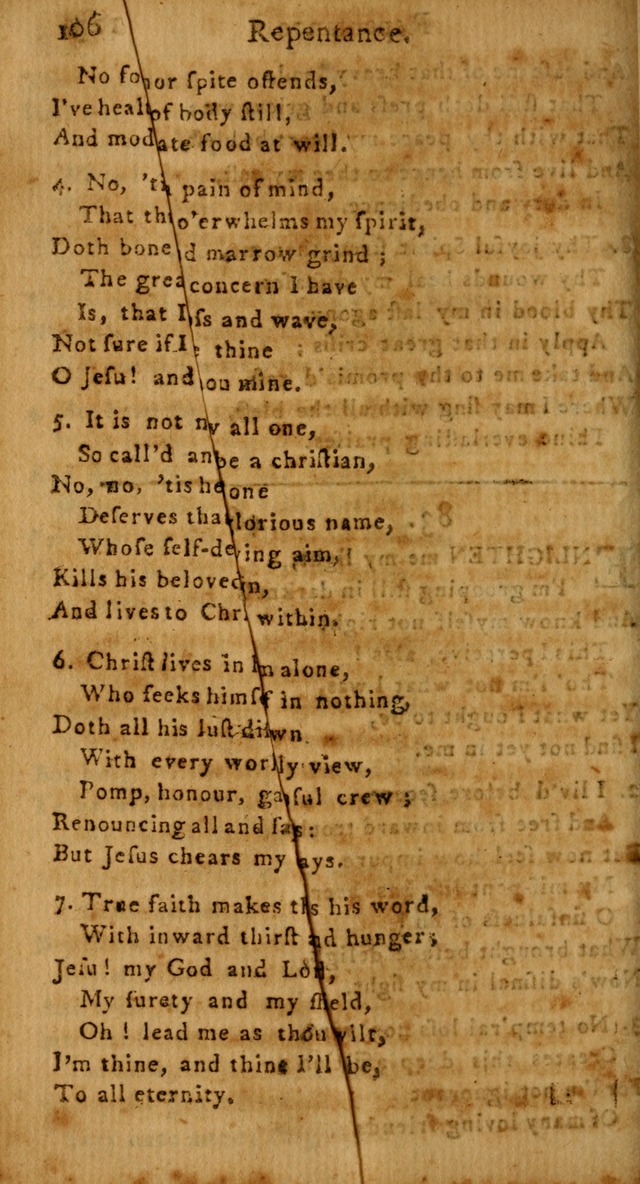 106 Repentance.
No ſo or ſpite oftends,
I've heal of body ſtill,
And mod ate food at will.
4. No, 'ti pain of mind,
That th o'erwhelms my ſpirit,
Doth bone d marrow grind ;
The grea concern I have
Is, that I ſs and wave,
Not ſure if I thine
O Jeſu! and ou mine.
5. It is not all one,
So call'd an be a chriſtian,
No, no, 'tis he one
Deſerves tha lorious name,
Whoſe ſelf-de ing aim,
Kills his beloved n,
And lives to Chr within.
6. Chriſt lives in m alone,
Who ſeeks himſ f in nothing,
Doth all his luſt di wn
With every worl ly view,
Pomp, honour, ga ful crew ;
Renouncing all and ſay :
But Jeſus chears my ays.
7. True faith makes t s his word,
With inward thirſt a d hunger ;
Jeſu! my God and Lo ,
My ſurety and my ſh eld,
Oh ! lead me as thou wilt,
I'm thine, and thine I'll be,
To all eternity.